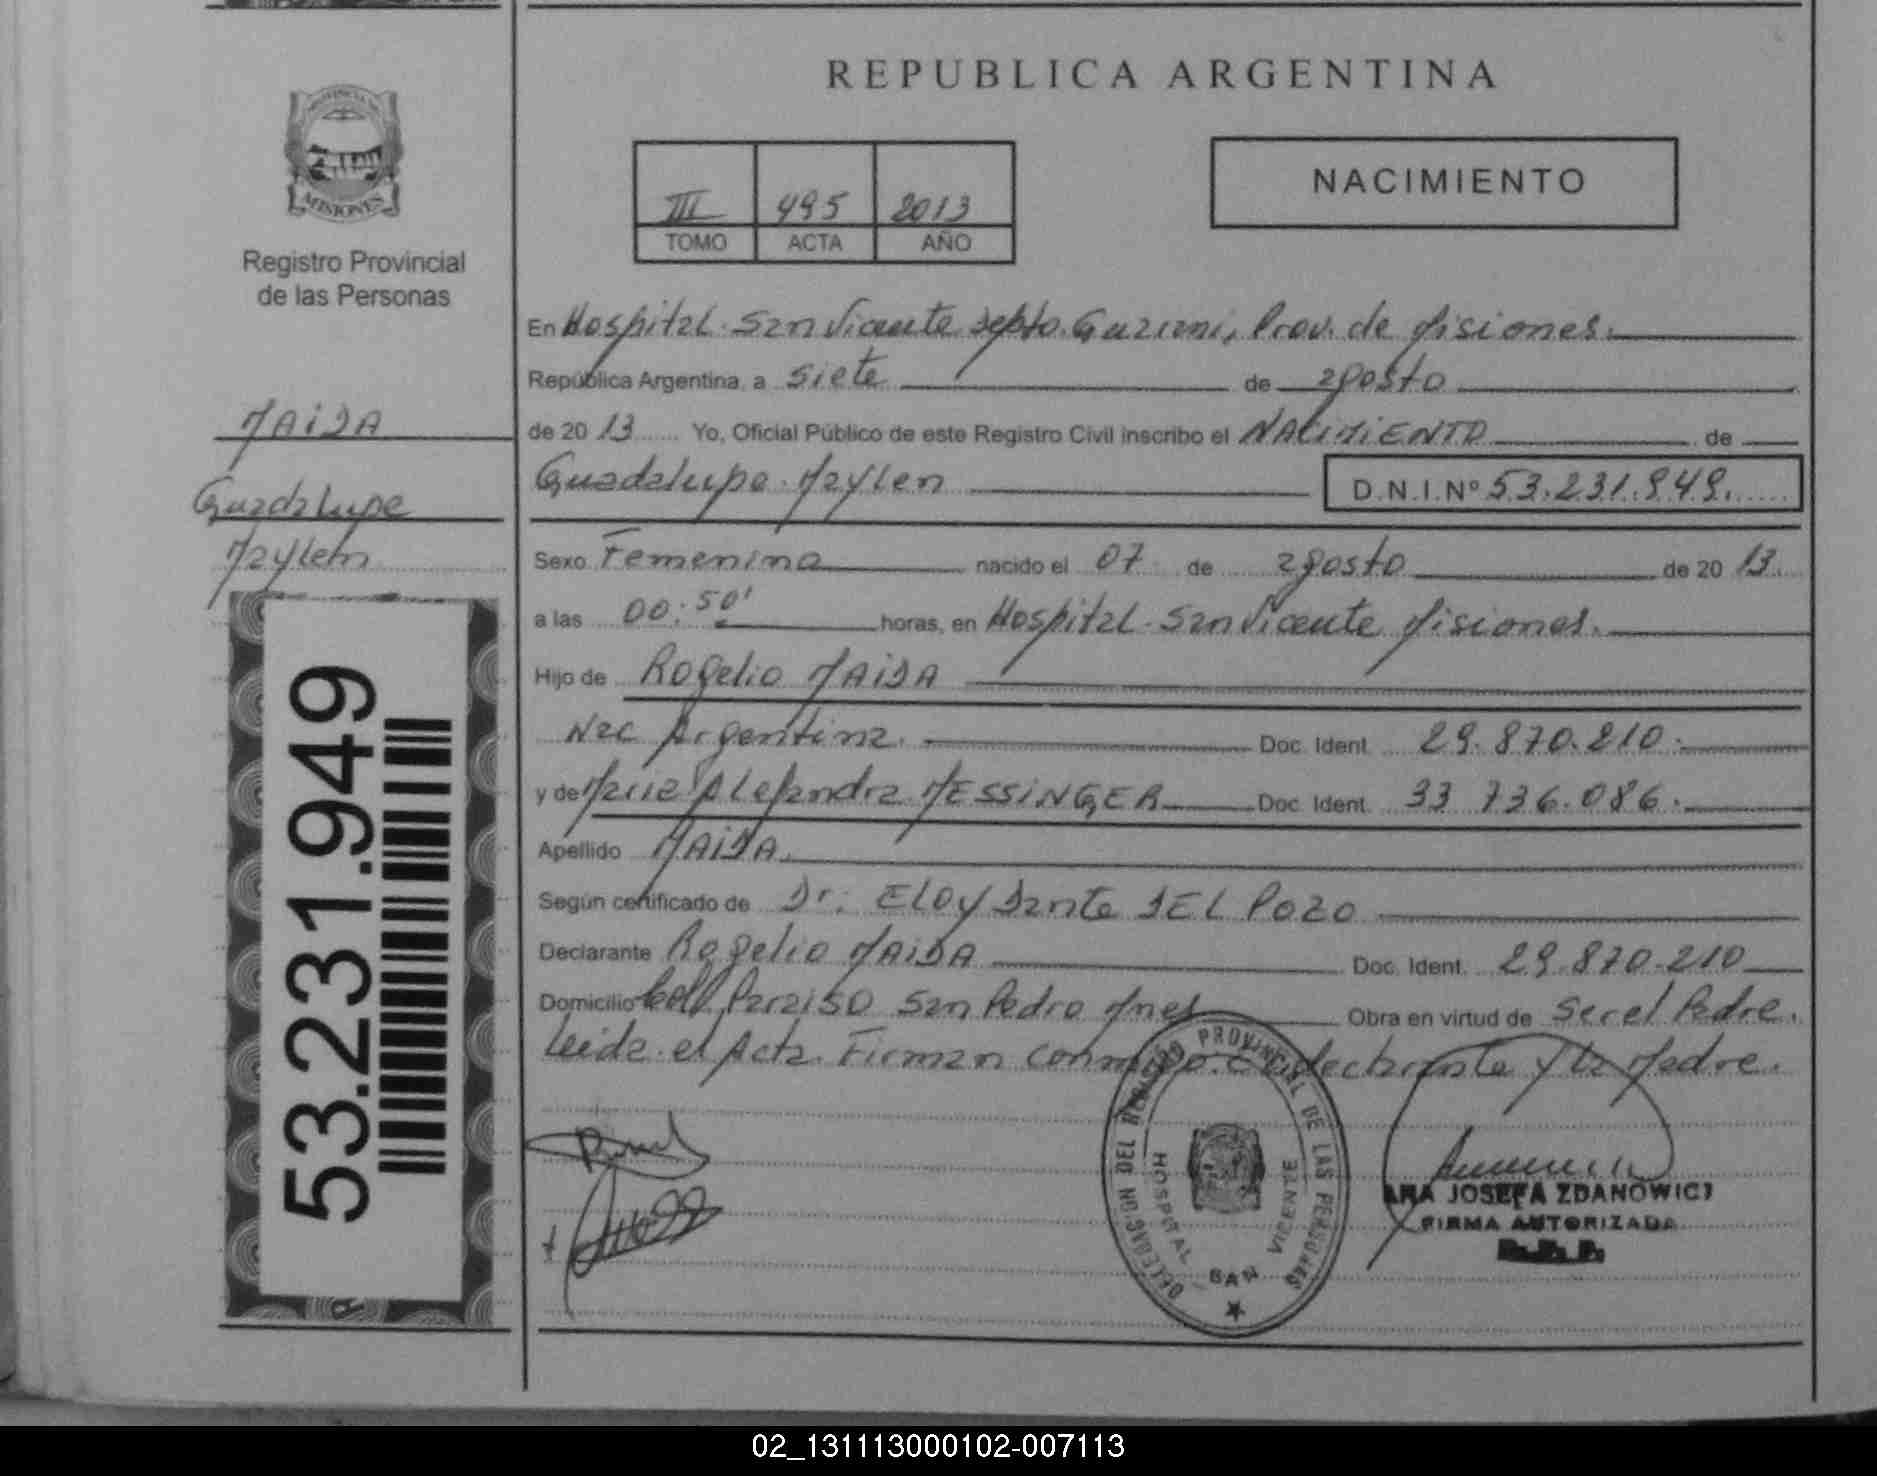 REPUBLICA ARGENTINA
PROVINCIA DE
MISIONES
Registro Provincial
de las Personas
III 495 2013
TOMO ACTA AÑO
NACIMIENTO
En Hospital San Vicente Depto. Guarani, Prov. de Misiones.
República Argentina, a siete de agosto
de 20 13 Yo, Oficial Público de este Registro Civil inscribo el NACIMIENTO de
Guadalupe Maylen D.N.I.Nº 53.231.949.
MAIDA
Guadalupe
Maylen
53.231.949
Sexo Femenina nacido el 07 de agosto de 20 13.
a las 00:50' horas, en Hospital San Vicente Misiones.
Hijo de Rogelio MAIDA
Nac Argentina. Doc. Ident. 29.870.210.
y de Maria Alejandra MESSINGER Doc. Ident. 33 736.086.
Apellido MAIDA.
Según certificado de Dr: ELOY Dante DEL POZO
Declarante Rogelio MAIDA Doc. Ident. 29.870.210
Domicilio Paraiso San Pedro Mnes Obra en virtud de Ser el Padre.
Leida el Acta Firman conmigo el declarante y la Madre.
DELEGACION DEL REGISTRO PROVINCIAL DE LAS PERSONAS
HOSPITAL SAN VICENTE
JOSEFA ZDANOWICZ
FIRMA AUTORIZADA
R. P. P.
02_131113000102-007113